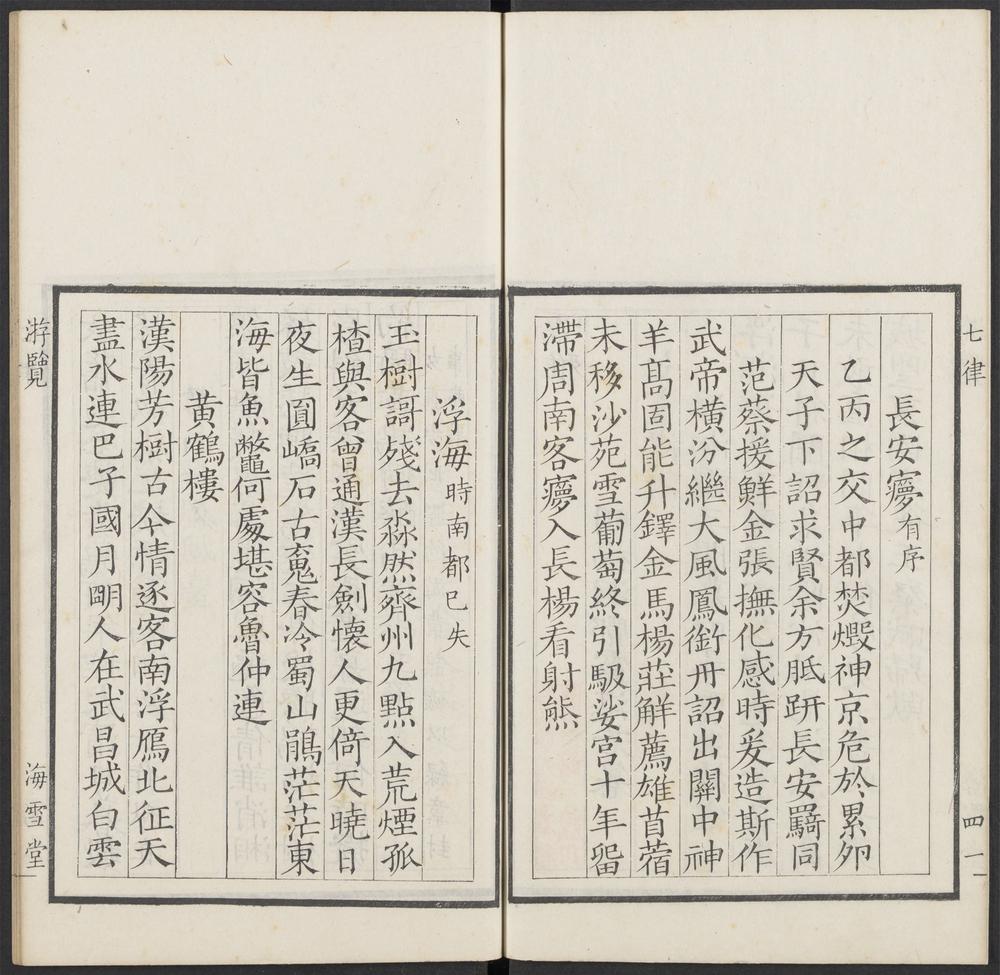 七律
四一
長安㝱有序
乙丙之交中都焚燬神京危於累夘
天子下詔求賢余方胝趼長安羇同
范蔡援鮮金張撫化感時爰造斯作
武帝橫汾繼大風鳳銜丹詔出關中神
羊髙固能升鐸金馬楊莊解薦雄苜蓿
未移沙苑雪葡萄終引馺娑宮十年畱
滯周南客㝱入長楊看射熊
浮海時南都已失
玉樹謌殘去淼然齊州九點入荒煙孤
楂與客曾通漢長劍懷人更倚天曉日
夜生圓嶠石古䰟春冷蜀山鵑茫茫東
海皆魚鼈何處堪容魯仲連
黃鶴樓
漢陽芳樹古今情逐客南浮鴈北征天
盡水連巴子國月朙人在武昌城白雲
游覽
海雪堂